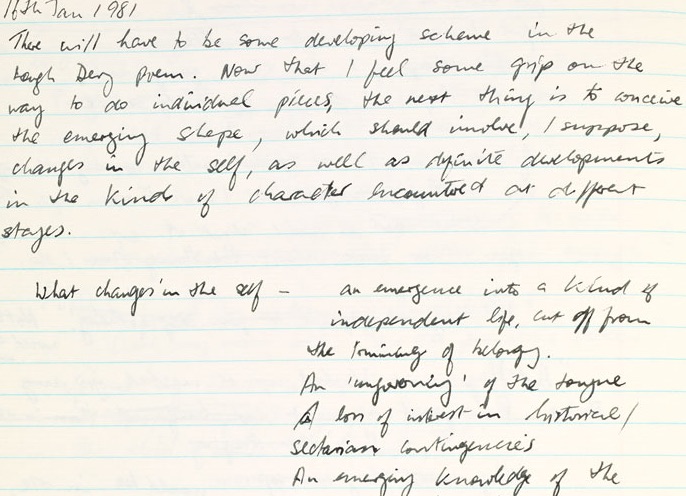 16th Jan 1981
There will have to be some developing scheme in the
Lough Derg Poem. Now that I feel some grip on the
way to do individual pieces, the next thing is to conceive
the emerging shape, which should involve, I suppose,
changes in the self, as well as definite developments
in the kind of character encountered at different
stages.
What changes in the self - an emergence into a kind of
independent life, cut off from
the of belonging.
An 'ungoverning' of the tongue
A loss of interest in historical/
sectarian contingencies
An emerging knowledge of the